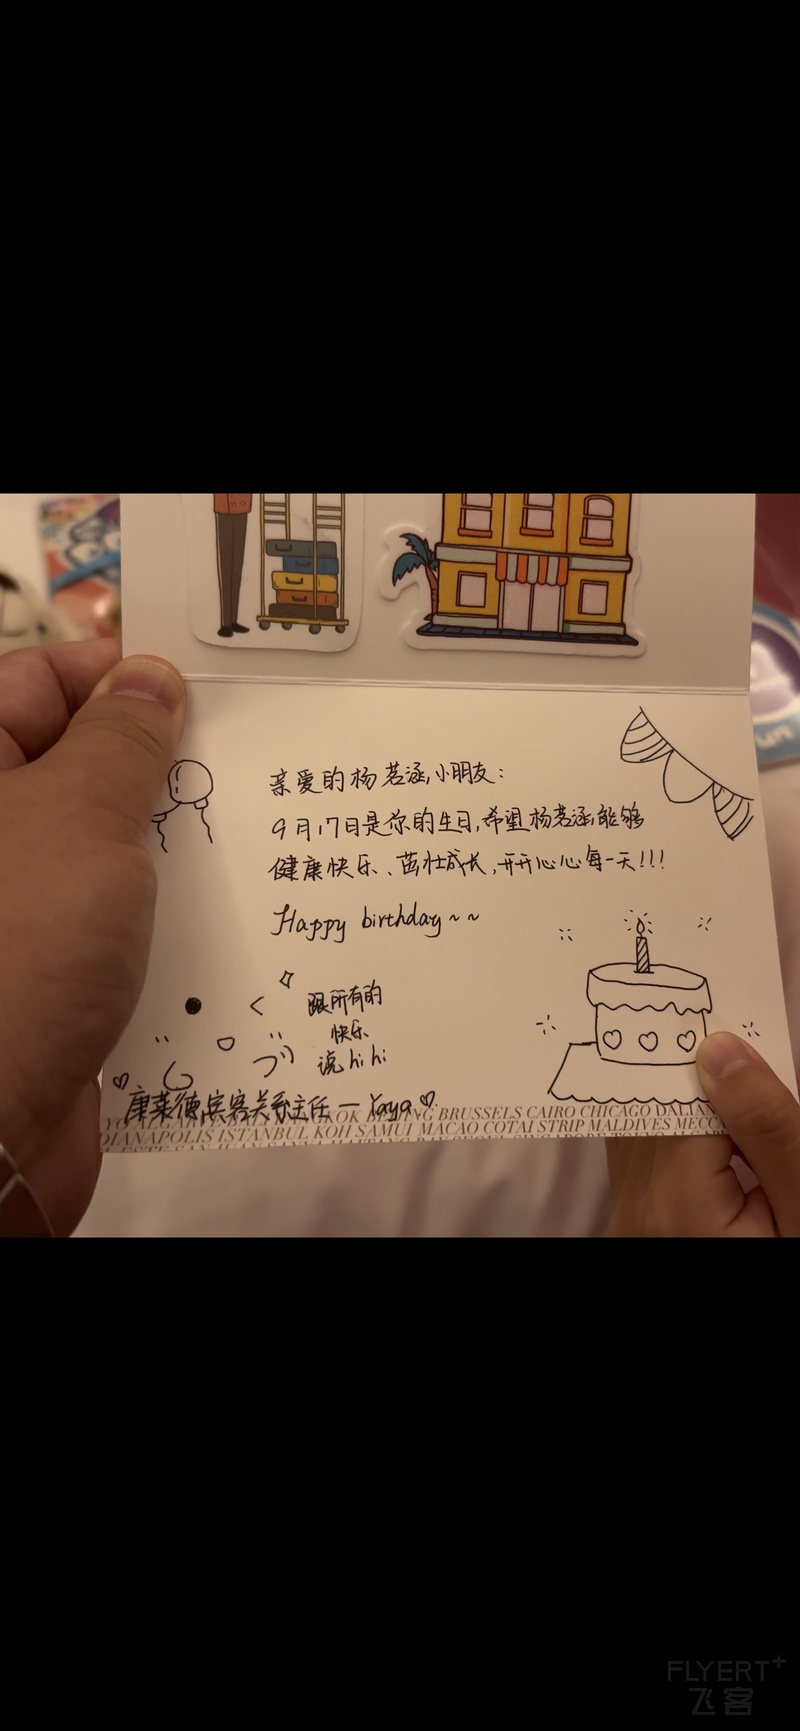 亲爱的杨若涵小朋友：
9月17日是你的生日，希望杨若涵能够
健康快乐、茁壮成长，开开心心每一天！！！
Happy birthday~~
跟所有的
快乐
说hi hi
康莱德宾客关系主任 — Yaya
BRUSSELS CAIRO CHICAGO DALIAN
DIANAPOLIS ISTANBUL KOH SAMUI MACAO COTAI STRIP MALDIVES MECCA
FLYERT+
飞客